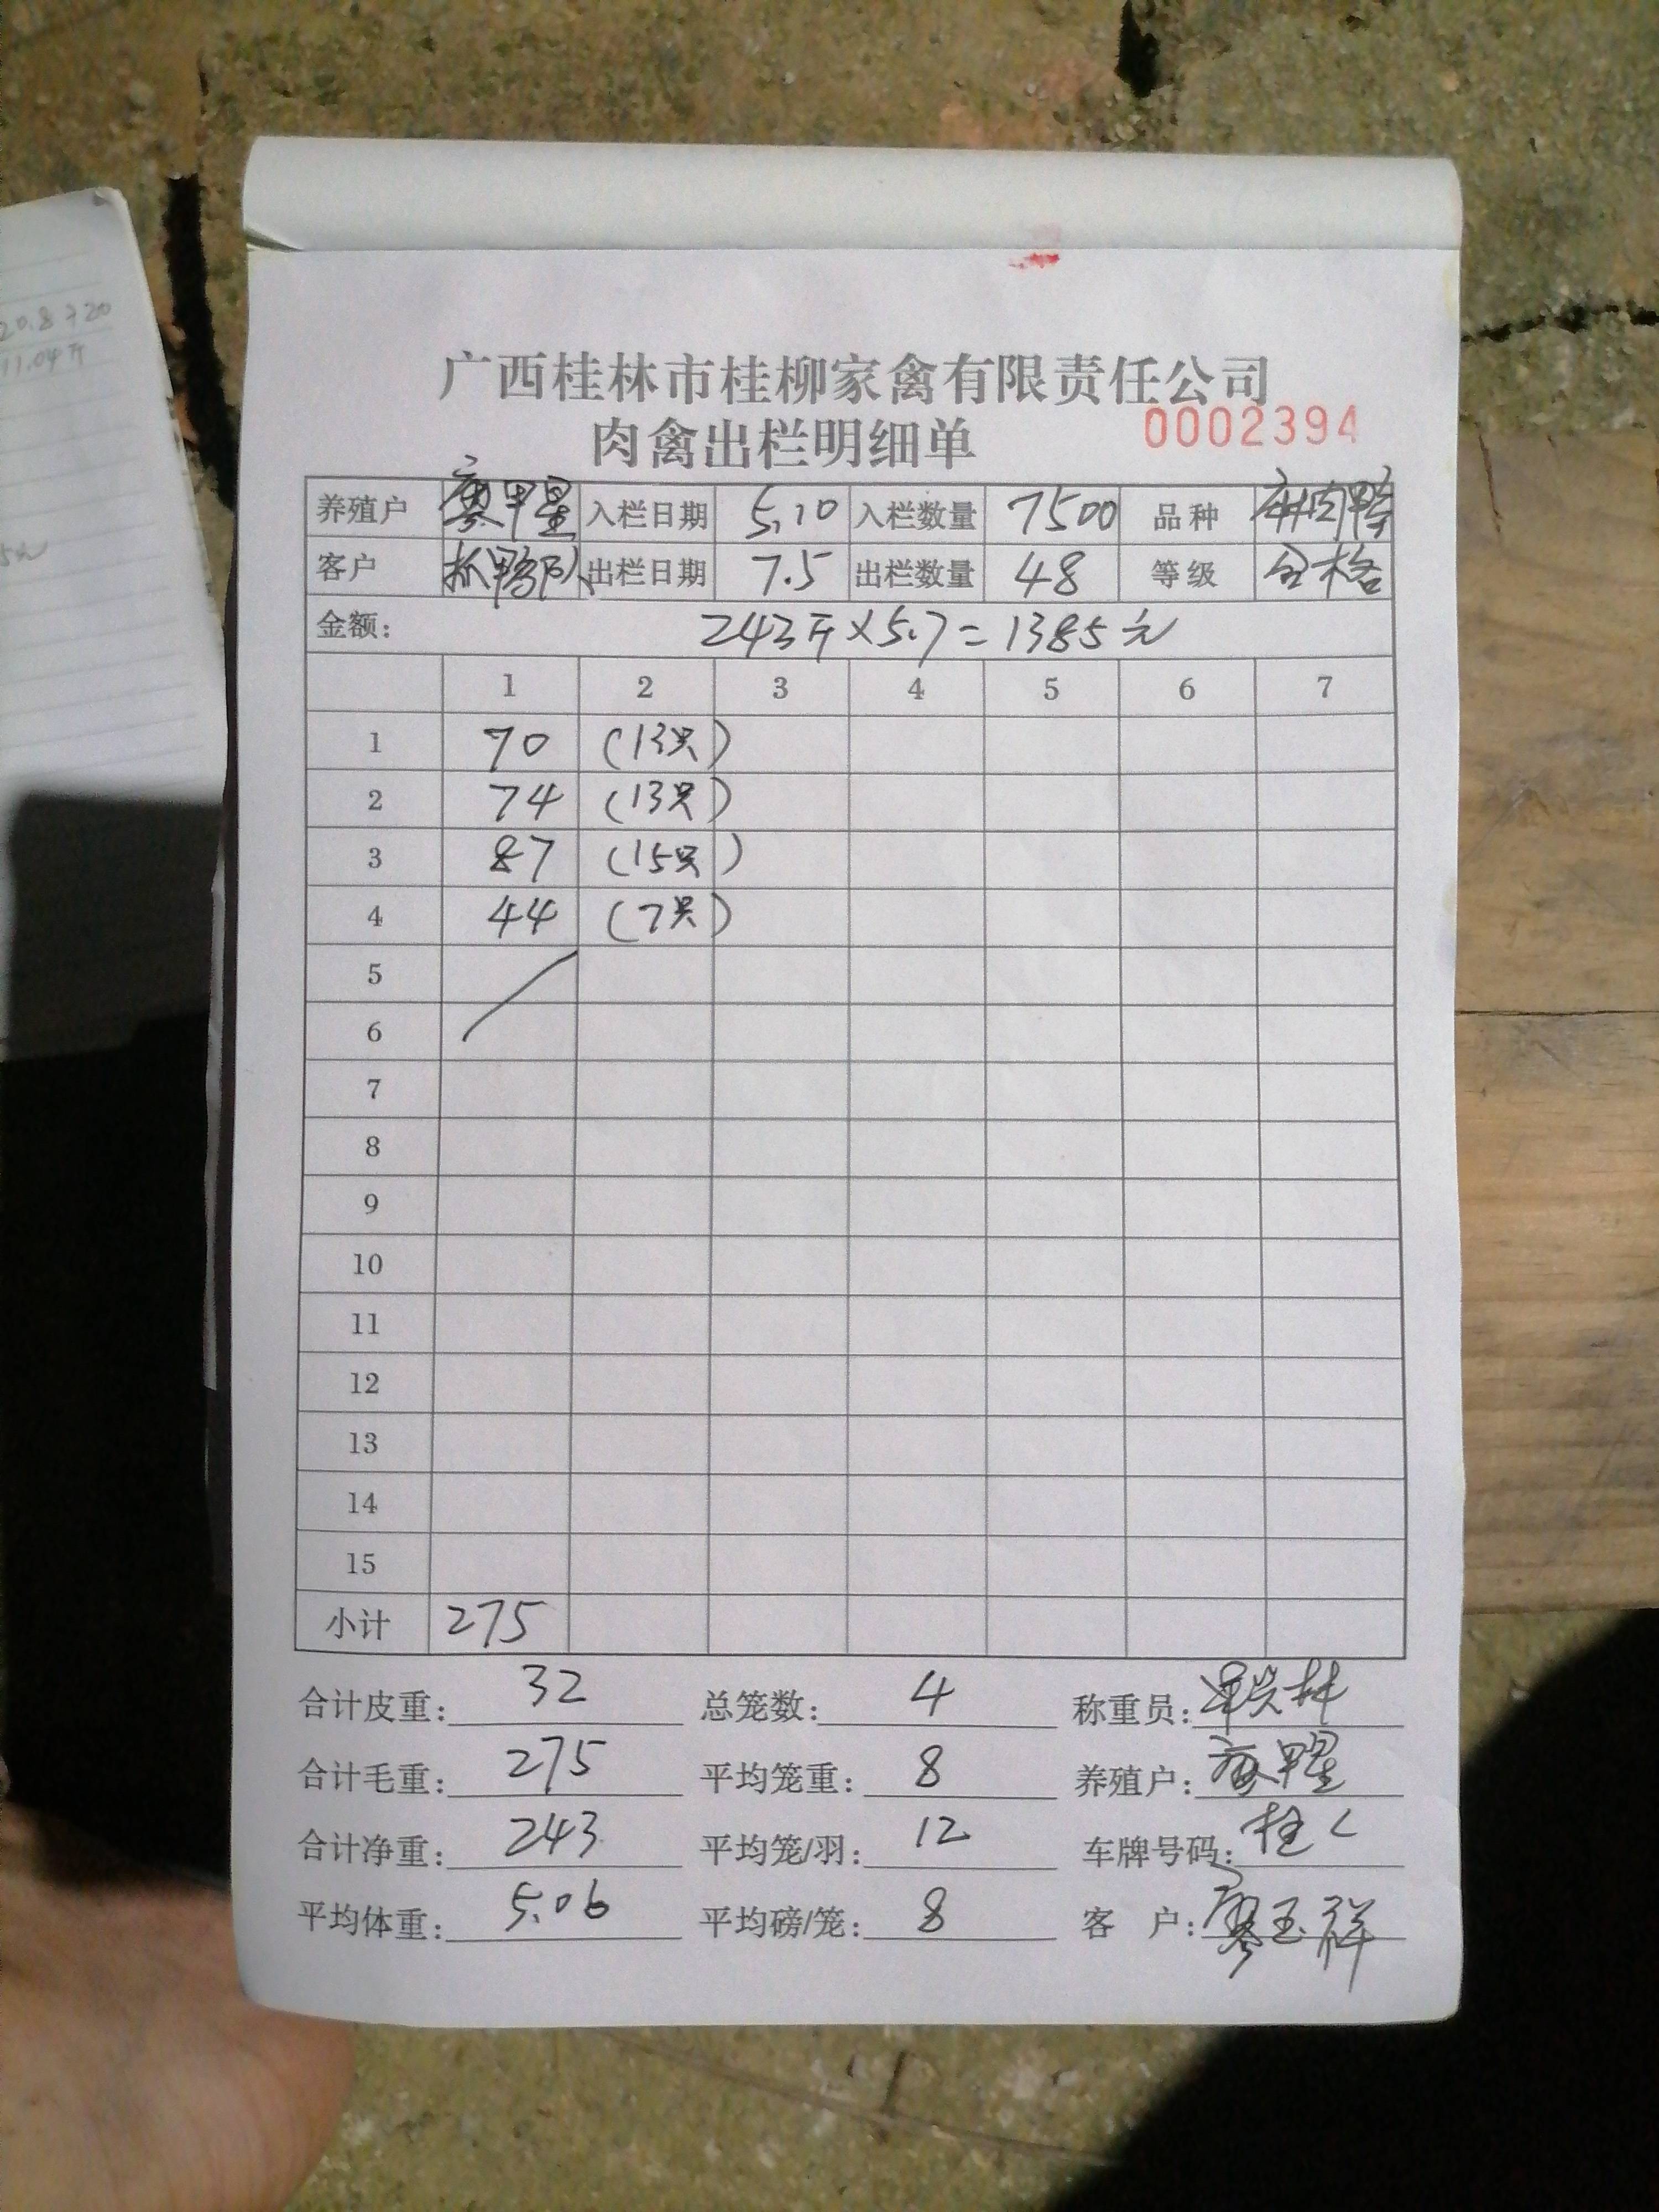 20.8720
11.04斤
5元
广西桂林市桂柳家禽有限责任公司
肉禽出栏明细单 0002394
养殖户 廖甲星 入栏日期 5.10 入栏数量 7500 品种 麻肉鸭
客户 抓鸭队 出栏日期 7.5 出栏数量 48 等级 合格
金额: 243斤×5.7=1385元
1 2 3 4 5 6 7
1 70 (13只)
2 74 (13只)
3 87 (15只)
4 44 (7只)
5
6
7
8
9
10
11
12
13
14
15
小计 275
合计皮重: 32 总笼数: 4 称重员:
合计毛重: 275 平均笼重: 8 养殖户: 廖甲星
合计净重: 243 平均笼/羽: 12 车牌号码: 桂C
平均体重: 5.06 平均磅/笼: 8 客 户: 廖玉祥